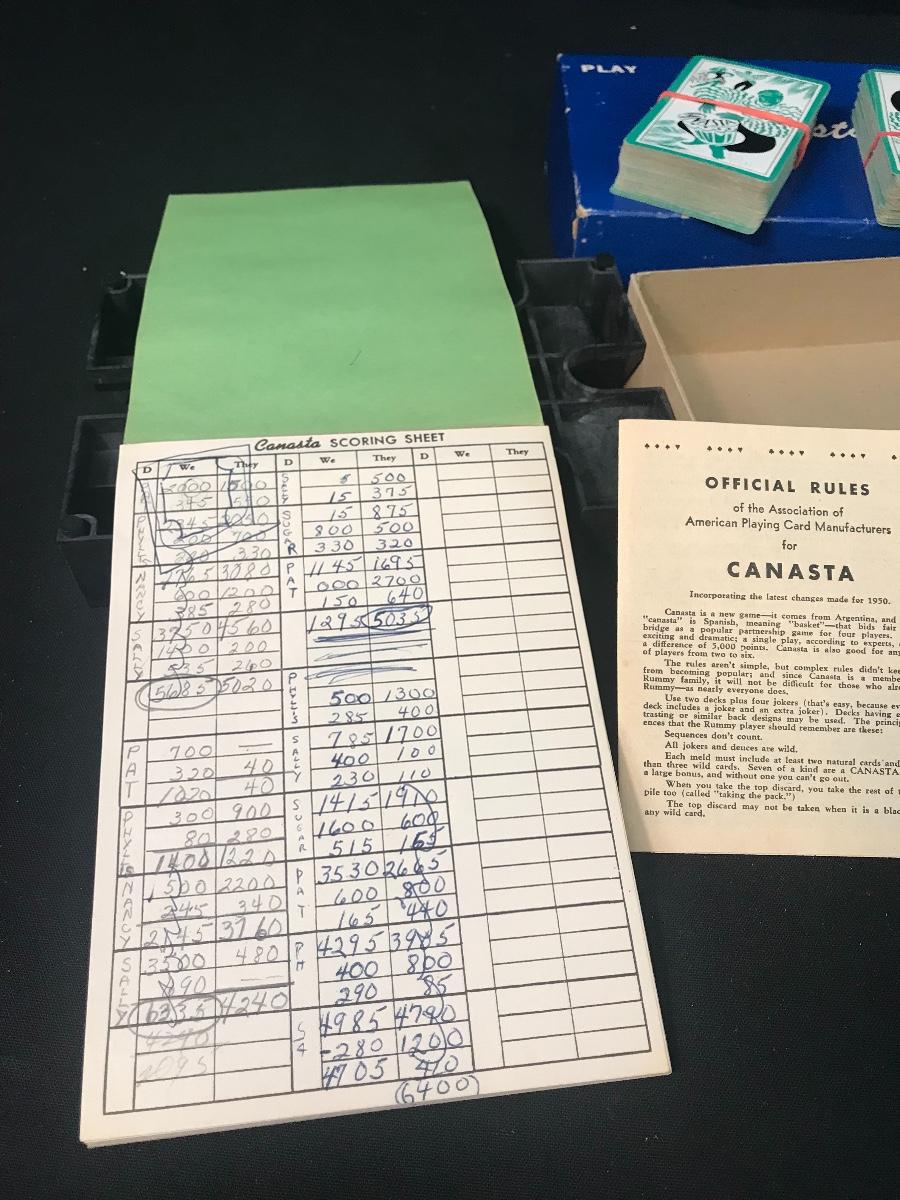 PLAY
Canasta SCORING SHEET
D We They D We They D We They
SALLY
5 500
15 375
SUGAR
15 875
800 500
330 320
PAT
1145 1695
000 2700
150 640
1295 5035
PHYLIS
500 1300
285 400
SALLY
785 1700
400 100
230 110
SUGAR
1415 1910
1600 600
515 155
PAT
3530 2665
600 800
165 440
PH
4295 3905
400 800
290 85
4985 4790
-280 1200
4705 410
(6400)
PHYLIS
NANCY
3080
600 1200
385 280
SALLY
3250 4560
1400 200
535 260
5685 5020
PAT
700 —
320 40
1020 40
PHYLIS
300 900
80 280
1400 1220
NANCY
1500 2200
245 340
2145 3760
SALLY
3500 480
690 —
6335 4240
4240
OFFICIAL RULES
of the Association of
American Playing Card Manufacturers
for
CANASTA
Incorporating the latest changes made for 1950.
Canasta is a new game—it comes from Argentina, and
"canasta" is Spanish, meaning "basket"—that bids fair
bridge as a popular partnership game for four players.
exciting and dramatic; a single play, according to experts,
a difference of 5,000 points. Canasta is also good for any
of players from two to six.
The rules aren't simple, but complex rules didn't ke
from becoming popular; and since Canasta is a membe
Rummy family, it will not be difficult for those who alr
Rummy—as nearly everyone does.
Use two decks plus four jokers (that's easy, because ev
deck includes a joker and an extra joker). Decks having
trasting or similar back designs may be used. The princip
ences that the Rummy player should remember are these:
Sequences don't count.
All jokers and deuces are wild.
Each meld must include at least two natural cards and
than three wild cards. Seven of a kind are a CANASTA
a large bonus, and without one you can't go out.
When you take the top discard, you take the rest of t
pile too (called "taking the pack.")
The top discard may not be taken when it is a blac
any wild card.